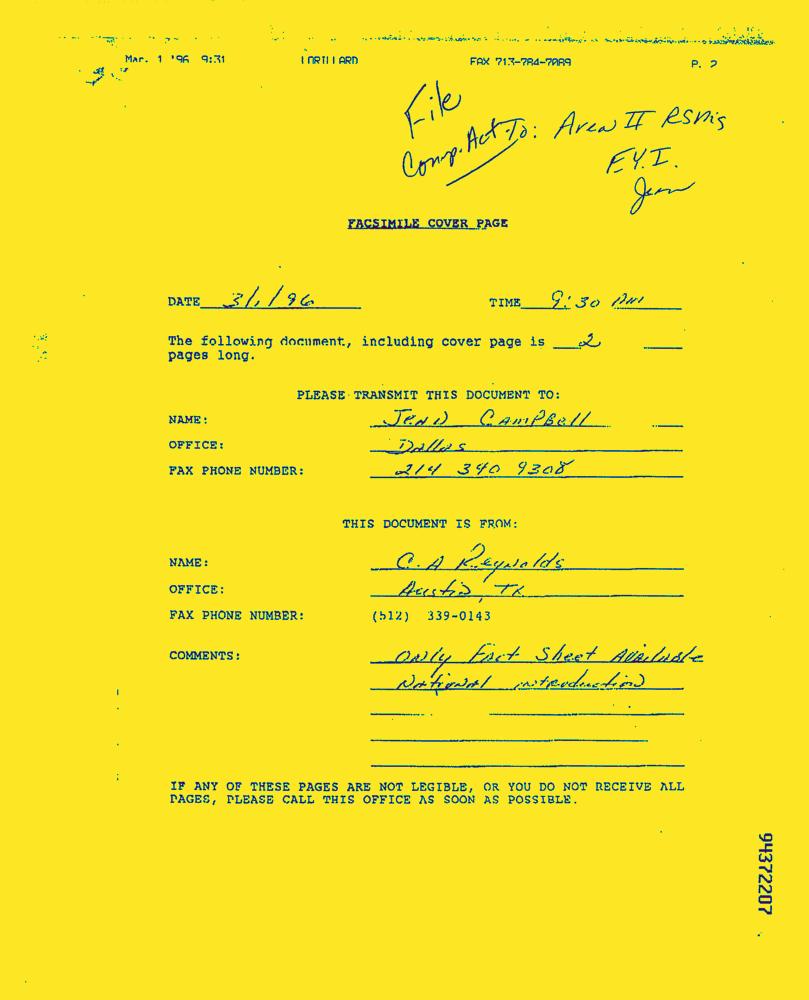 Mar. 1 '96 9:31 LORILLARD FAX 713-784-7089 P. 2
File
Comp. Act To: Area II RSMs
F.Y.I.
Jean
FACSIMILE COVER PAGE
DATE 3/1/96 TIME 9:30 AM
The following document, including cover page is 2
pages long.
PLEASE TRANSMIT THIS DOCUMENT TO:
NAME: Jean Campbell
OFFICE: Dallas
FAX PHONE NUMBER: 214 340 9308
THIS DOCUMENT IS FROM:
NAME: C. A Reynolds
OFFICE: Austin, TX
FAX PHONE NUMBER: (512) 339-0143
COMMENTS: Only Fact Sheet Available
National introduction
IF ANY OF THESE PAGES ARE NOT LEGIBLE, OR YOU DO NOT RECEIVE ALL
PAGES, PLEASE CALL THIS OFFICE AS SOON AS POSSIBLE.
94372207